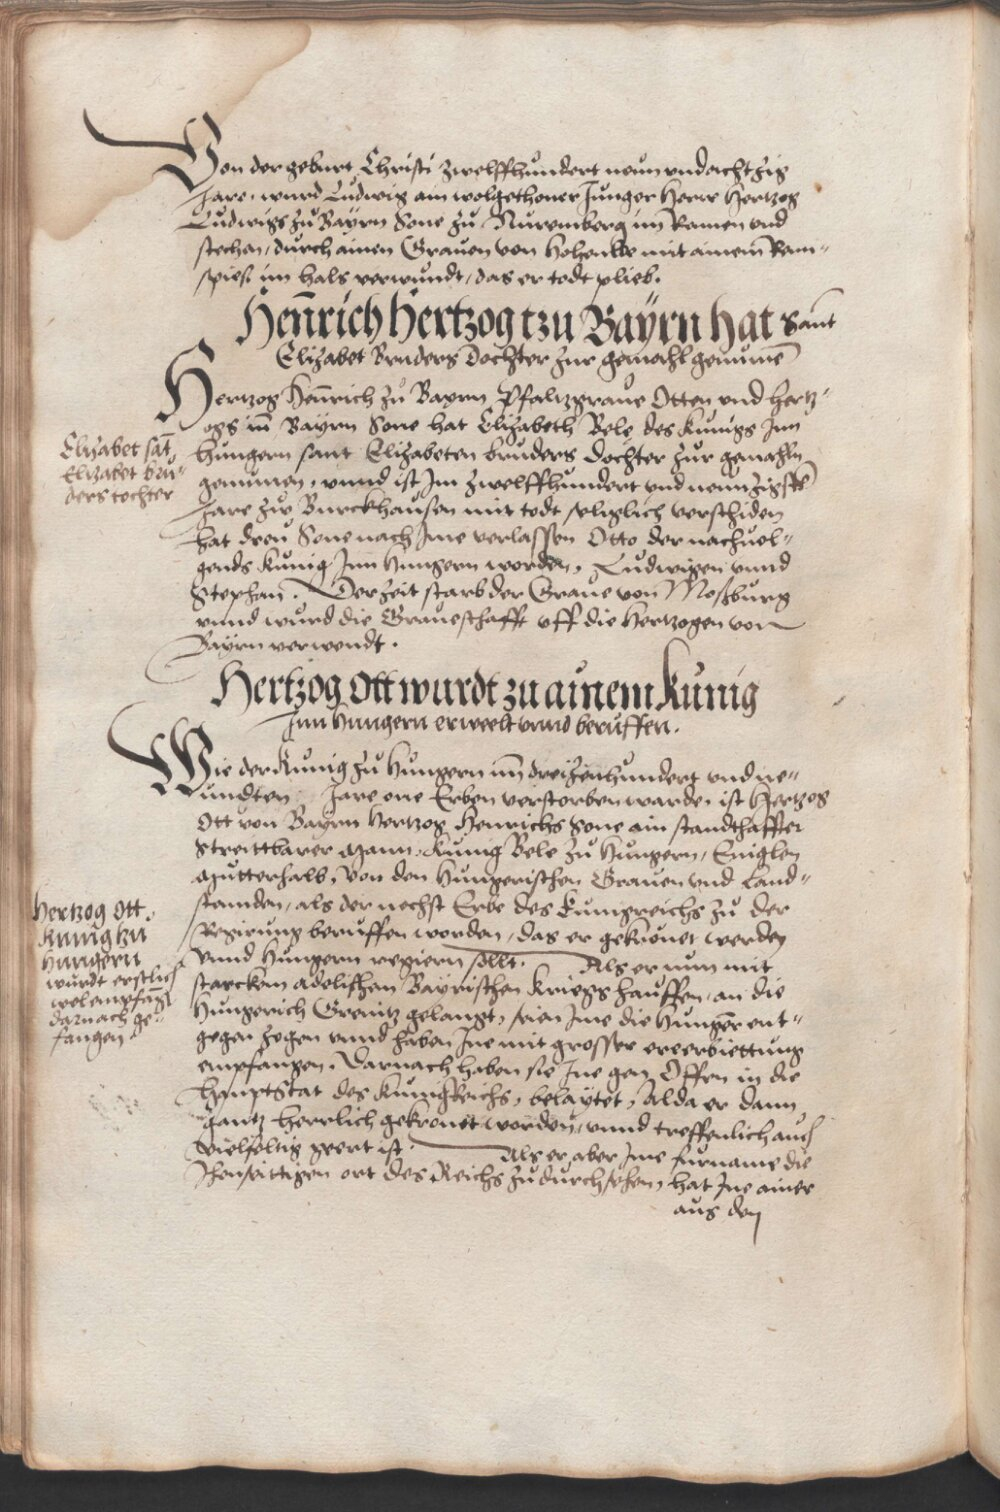 Von der geburt Christi zwelffhundert neun vnd achtzig
Jare, wurd Ludwig ain wolgethoner Junger Herr Hertzog
Ludwigs zu Bayrn Sone zu Nuremberg im Remen vnd
stechen, durch ainen Grauen von Hohenloe mit ainem Renn-
spiess im hals verwundt, das er todt plieb.
Henrich Hertzog tzu Bayrn hat Sant
Elizabet Bruders Dochter zur gemahl genumē
Hertzog Henrich zu Bayrn Pfaltzgraue Otten vnd hertz-
ogs in Bayrn Sone hat Elizabeth Bele des Kunigs Jnn
Hungern sant Elizabeten bruders dochter zur gemahln
genumen, vnnd ist Jm zwelffhundert vnd neunzigstē
Jare zu Burckhausen mit todt seliglich verschiden
hat dreu Sone nach Jme verlassen Otto der nachuol-
gends Kunig Jnn Hungern worden, Ludwigen vnnd
Stephan. Der Zeit starb der Graue von Mosburg
vnnd wurd die Graueschafft vff die Hertzogen von
Bayrn verwendt.
Elizabet sāt
Elizabet bru-
ders tochter
Hertzog Ott wurdt zu ainem Kunig
Jnn Hungern erweelt vnnd beruffen.
Wie der Kunig zu Hungern im dreizenhundert vnd ne-
undten Jare one Erben verstorben warde, ist Hertzog
Ott von Bayrn Hertzog Henrichs Sone ain standthaffter
streittbarer Mann, Kunig Bele zu Hungern, Eniglen
Mutterhalb, von den Hungerischen Grauen vnd Land-
standen, als der nechst Erbe des Kunigreichs zu der
Regirung beruffen worden, das er gekronet werden
vnnd Hungern regiern sollt. Als er nun mit
starckem adelischen Bayrischen Kriegs hauffen, an die
Hungerisch Grenitz gelangt, seien Jme die Hunger ent-
gegen zogen vnnd haben Jne mit grosser ereerbiettung
empfangen. Darnach haben sie Jne gen Offen in die
Hauptstat des Kunigkreichs, belaytet, Alda er dann
gantz herrlich gekronet worden, vnnd treffenlich auch
vielfoltig geert ist. Als er aber Jme furname die
Jhenseittigen ort des Reichs zu durchsehen, hat Jne ainer
aus den
Hertzog Ott
Kunig tzu
Hungern
wurdt erstlich
wol empfāgē
darnach ge-
fangen